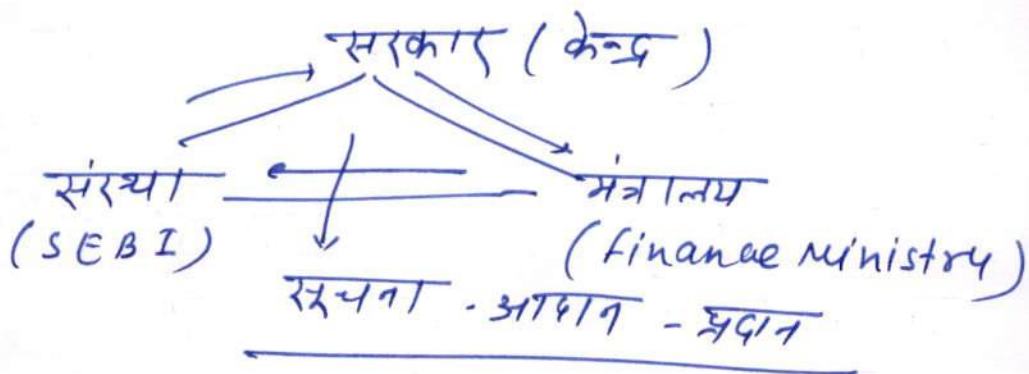 सरकार (केन्द्र)
संस्था मंत्रालय
(SEBI) (finanae Ministry)
सूचना - आदान - प्रदान